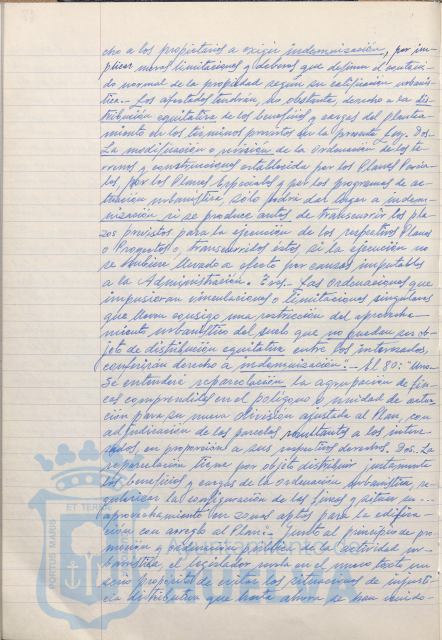 cho a los propietarios a exigir indemnización, por im-
plicar meras limitaciones y deberes que definen el conteni-
do normal de la propiedad según su calificación urbanís-
tica.- Los afectados tendrán, no obstante, derecho a la dis-
tribución equitativa de los beneficios y cargas del planea-
miento en los términos previstos en la presente Ley. Dos.
La modificación o revisión de la ordenación de los te-
rrenos y construcciones establecida por los Planes Parcia-
les, por los Planes Especiales y por los programas de ac-
tuación urbanística, sólo podrá dar lugar a indem-
nización si se produce antes de transcurrir los pla-
zos previstos para la ejecución de los respectivos Planes
o Programas o, transcurridos éstos si la ejecución no
se hubiere llevado a efecto por causas imputables
a la Administración. Tres.- Las Ordenaciones que
impusieran vinculaciones o limitaciones singulares
que lleven consigo una restricción del aprovecha-
miento urbanístico del suelo que no puedan ser ob-
jeto de distribución equitativa entre los interesados,
conferirán derecho a indemnización".- Al 80: "Uno-
Se entenderá reparcelación la agrupación de fin-
cas comprendidas en el polígono o unidad de actua-
ción para su nueva división ajustada al Plan, con
adjudicación de las parcelas resultantes a los intere-
sados, en proporción a sus respectivos derechos. Dos. La
reparcelación tiene por objeto distribuir justamente
los beneficios y cargas de la ordenación urbanística, re-
gularizar la configuración de las fincas y situar su...
aprovechamiento en zonas aptas para la edifica-
ción con arreglo al Plan".- Junto al principio de pro-
moción y ordenación pública de la actividad ur-
banística, el legislador en el nuevo texto un
serio propósito de evitar las situaciones de injusti-
cia distributiva que hasta ahora se han venido-
ET TERRA
PORTUS MARIS